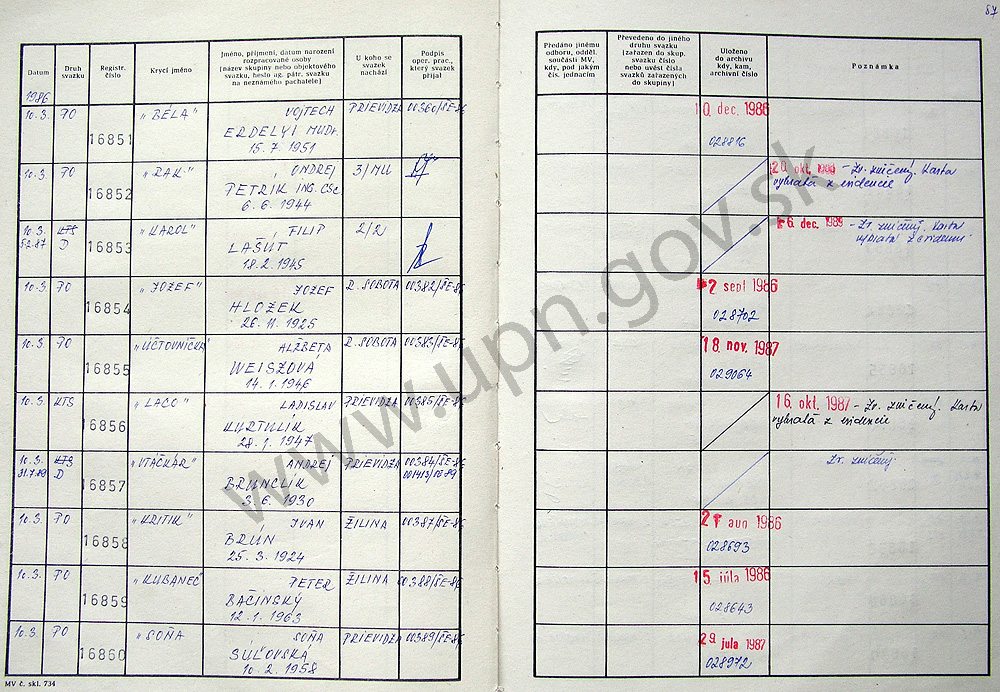 87
Datum
Druh svazku
Registr. číslo
Krycí jméno
Jméno, příjmení, datum narození
rozpracované osoby
(název skupiny nebo objektového
svazku, heslo ag. pátr. svazku
na neznámého pachatele)
U koho se
svazek
nachází
Podpis
oper. prac.,
který svazek
přijal
Předáno jinému
odboru, odděl.
součásti MV,
kdy, pod jakým
čís. jednacím
Převedeno do jiného
druhu svazku
(zařazen do skup.
svazku číslo
nebo uvést čísla
svazků zařazených
do skupiny)
Uloženo
do archivu
kdy, kam,
archivní číslo
Poznámka
1986
10.3. PO 16851 "BÉLA" VOJTECH PRIEVIDZA 00380/SE-86 10. dec. 1986
ERDELYI MUDr.
15. 7. 1951 028816
10.3. PO 16852 "RAK" ONDREJ 3/MU 20. okt. - Zv. zničený. Karta
PETRIK ING. CSc vybratá z evidencie
6. 6. 1944
10.3. KTS 16853 "KAROL" FILIP 2/2 6. dec. 1989 - Zv. zničený. Karta
D LAŠUT vybratá z evidencie
18. 2. 1945
10.3. PO 16854 "JOZEF" JOZEF R. SOBOTA 00382/SE-86 2 sept 1986
HLOŽEK 028702
26. 11. 1925
10.3. PO 16855 "ÚČTOVNÍČKA" ALŽBETA R. SOBOTA 00383/SE-86 18. nov. 1987
WEISZOVÁ 029064
14. 1. 1946
10.3. KTS 16856 "LACO" LADISLAV PRIEVIDZA 00385/SE-86 16. okt. 1987 - Zv. zničený. Karta
KURTULÍK vybratá z evidencie
28. 1. 1947
10.3. KTS 16857 "VTÁČKÁR" ANDREJ PRIEVIDZA 00384/SE-86 Zv. zničený.
31.7.89 D BRUNCLÍK
3. 6. 1930
10.3. PO 16858 "KRITIK" IVAN ŽILINA 00387/SE-86 aug 1986
BRÚN 028693
25. 3. 1924
10.3. PO 16859 "KUBANEC" PETER ŽILINA 00388/SE-86 15. júla 1986
BAČINSKÝ 028643
12. 1. 1963
10.3. PO 16860 "SOŇA SOŇA PRIEVIDZA 00389/SE-86 29. jula 1987
SÚĽOVSKÁ 028972
10. 2. 1958
MV č. skl. 734
www.upn.gov.sk